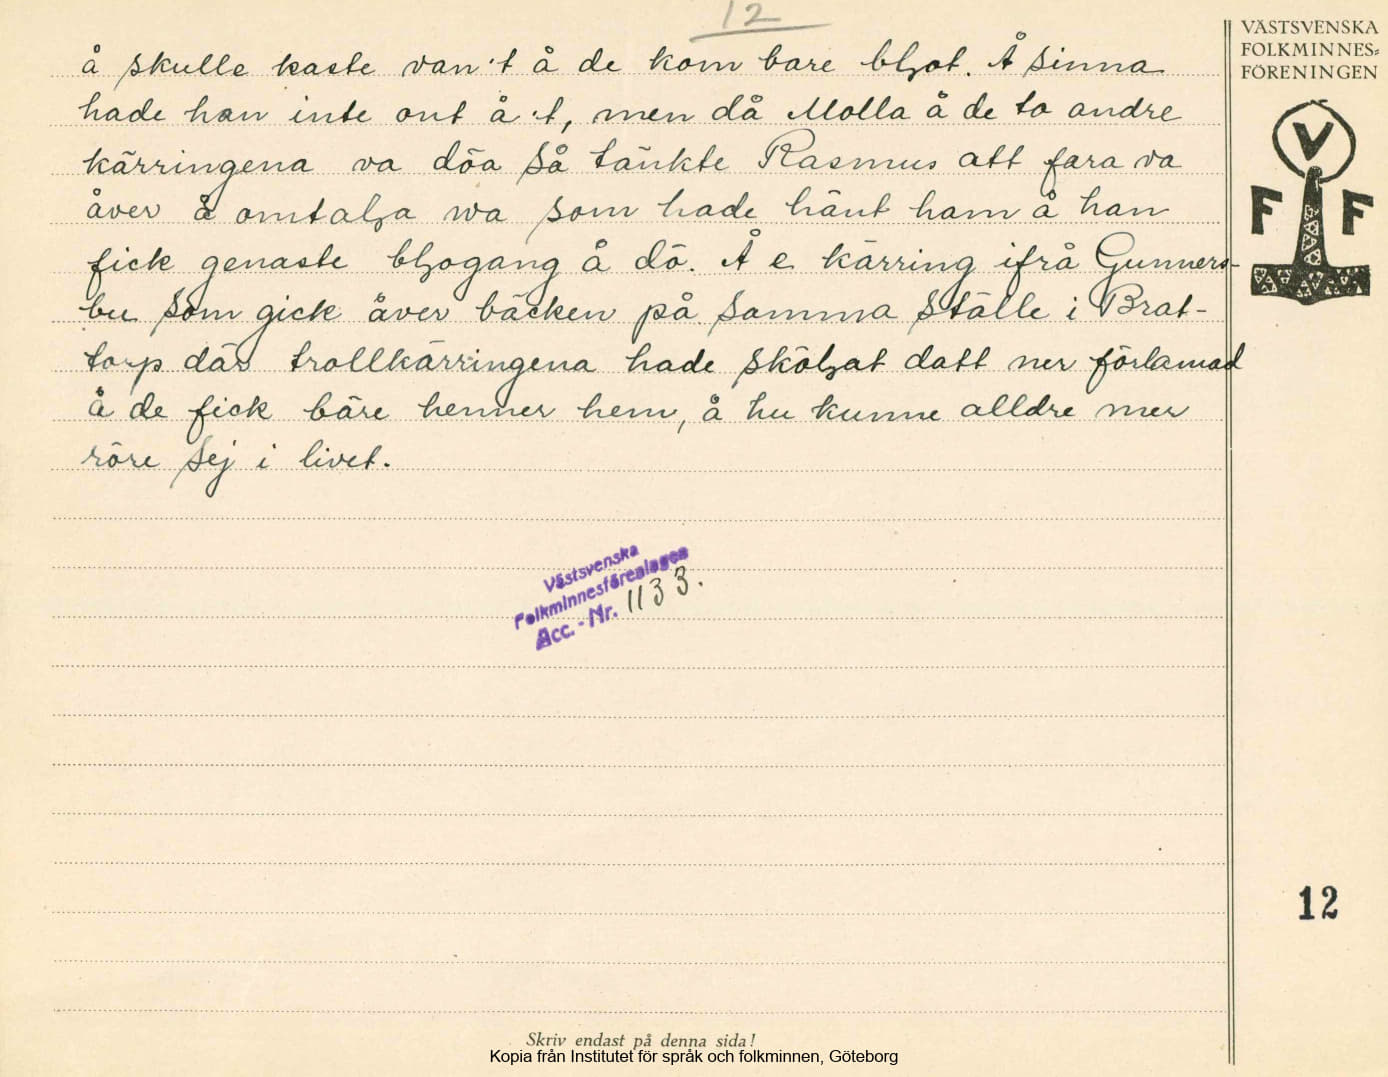 12
VÄSTSVENSKA
FOLKMINNES=
FÖRENINGEN
å skulle kaste van't å de kom bare bļot. Å sinna
hade han inte ont å 't, men då Molla å de to andre
kärringena va döa så tänkte Rasmus att fara va
åver å omtalļa va som hade hänt ham å han
fick genaste bļogang å dö. Å e kärring ifrå Gunners-
bu som gick åver bäcken på samma ställe i Brat-
torp där trollkärringena hade sköļjat datt ner förlamad
å de fick bäre henner hem, å hu kunne alldre mer
röre sej i livet.
V
F F
Västsvenska
Folkminnesföreningen
Acc. - Nr. 1133.
12
Skriv endast på denna sida!
Kopia från Institutet för språk och folkminnen, Göteborg